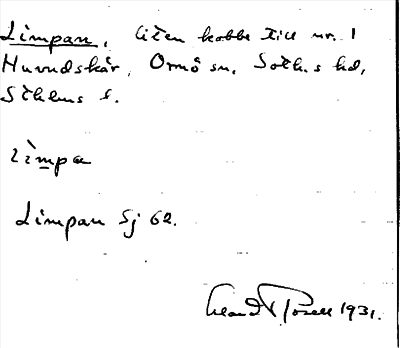 Limpan, liten kobbe till nr. 1
Huvudskär, Ornö sn, Soth.s hd,
Sthlms l.
limpa
Limpan Sj 62.
1931.